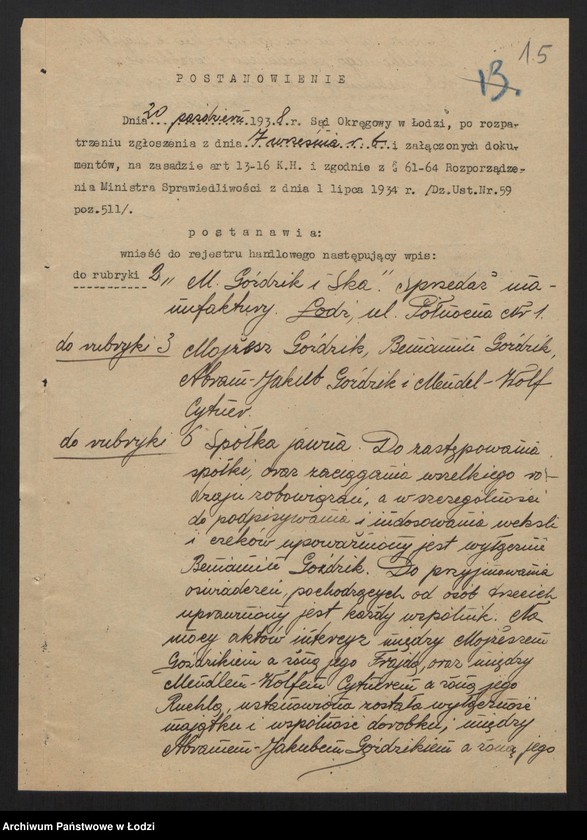 15
13.
POSTANOWIENIE
Dnia 20 październ. 1938 r. Sąd Okręgowy w Łodzi, po rozpa-
trzeniu zgłoszenia z dnia 7 września r. b. i załączonych doku-
mentów, na zasadzie art 13-16 K.H. i zgodnie z § 61-64 Rozporządze-
nia Ministra Sprawiedliwości z dnia 1 lipca 1934 r. /Dz.Ust.Nr.59
poz.511/.
postanawia:
wnieść do rejestru handlowego następujący wpis:
do rubryki 2 „M. Goździk i Ska". Sprzedaż ma-
nufaktury. Łódź, ul. Północna Nr 1.
do rubryki 3 Mojżesz Goździk, Beniamin Goździk,
Abram-Jakub Goździk i Mendel-Wolf
Cytner.
do rubryki 6 Spółka jawna. Do zastępowania
spółki, oraz zaciągania wszelkiego ro-
dzaju zobowiązań, a w szczególności
do podpisywania i indosowania weksli
i czeków upoważniony jest wyłącznie
Beniamin Goździk. Do przyjmowania
oświadczeń, pochodzących od osób trzecich
uprawniony jest każdy wspólnik. Na
mocy aktów intercyz między Mojżeszem
Goździkiem a żoną jego Frajdą, oraz między
Mendlem-Wolfem Cytnerem a żoną jego
Ruchlą, ustanowiona została wyłączność
majątku i wspólność dorobku, między
Abramem-Jakubem Goździkiem a żoną jego
Archiwum Państwowe w Łodzi